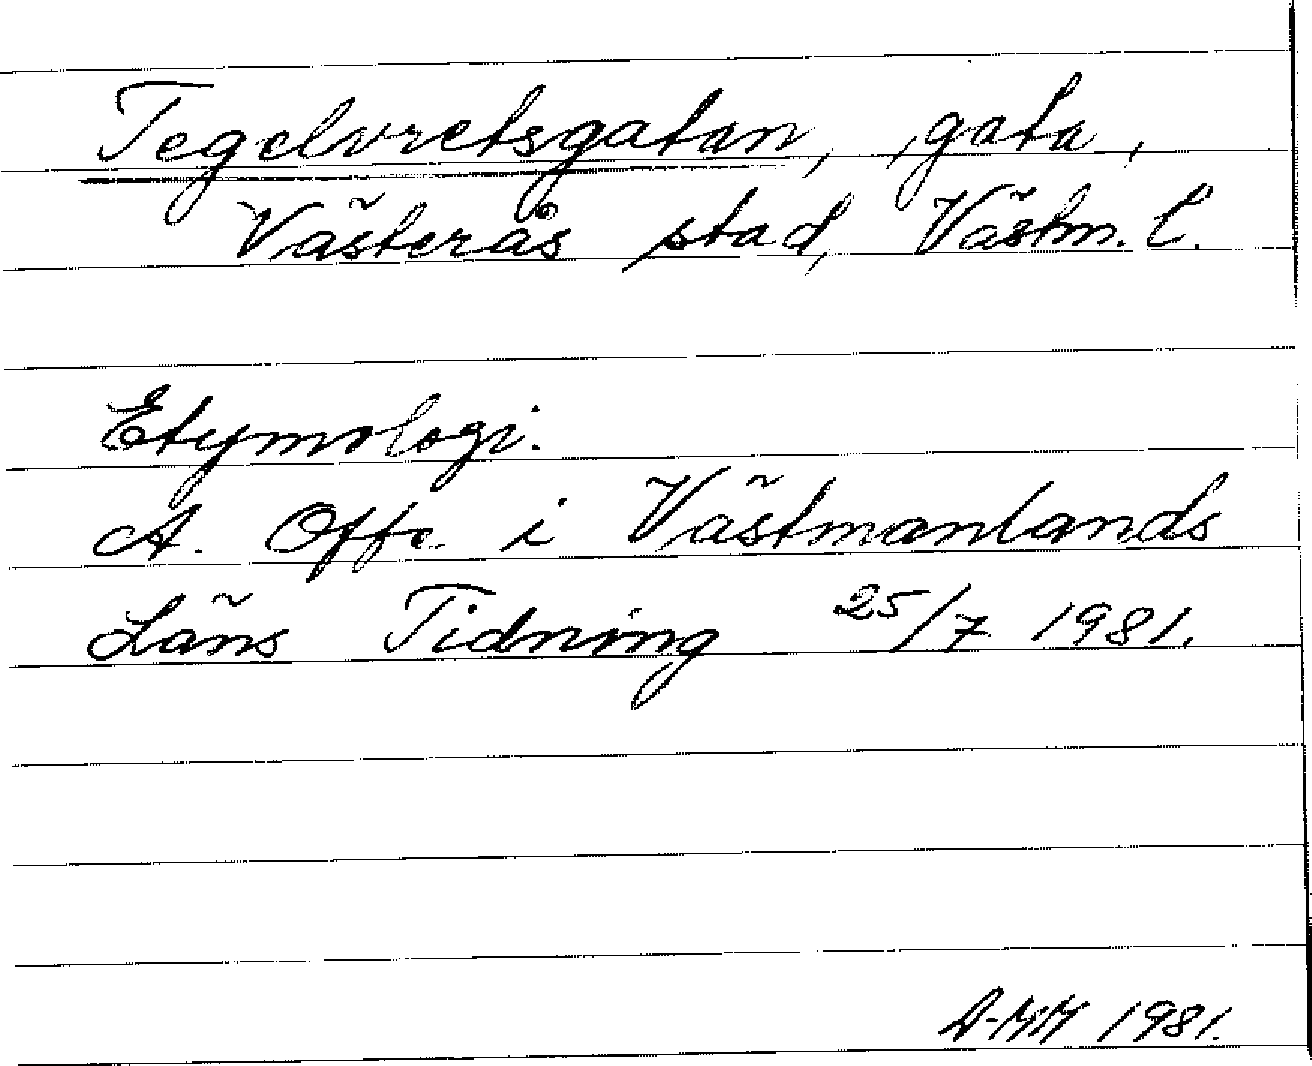 Tegelvretsgatan, gata,
Västerås stad, Västm. l.
Etymologi.
A. Offe. i Västmanlands
Läns Tidning 25/7 1981.
A-MM 1981.